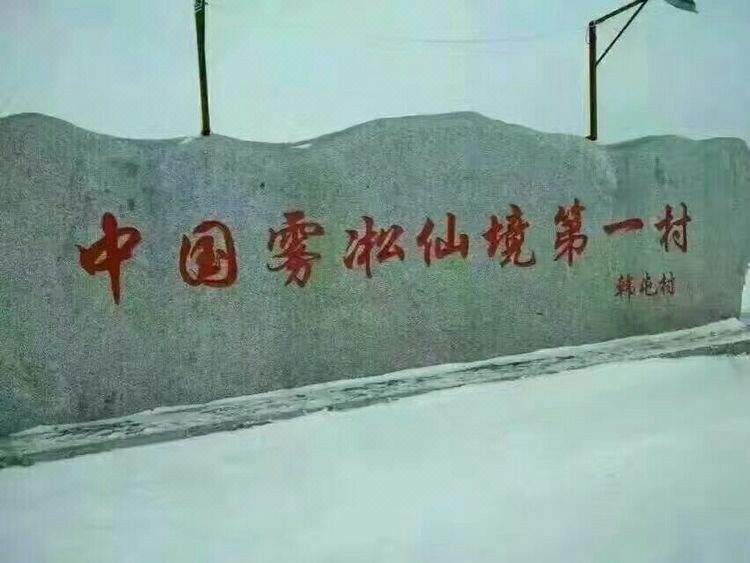 中国雾凇仙境第一村
韩屯村